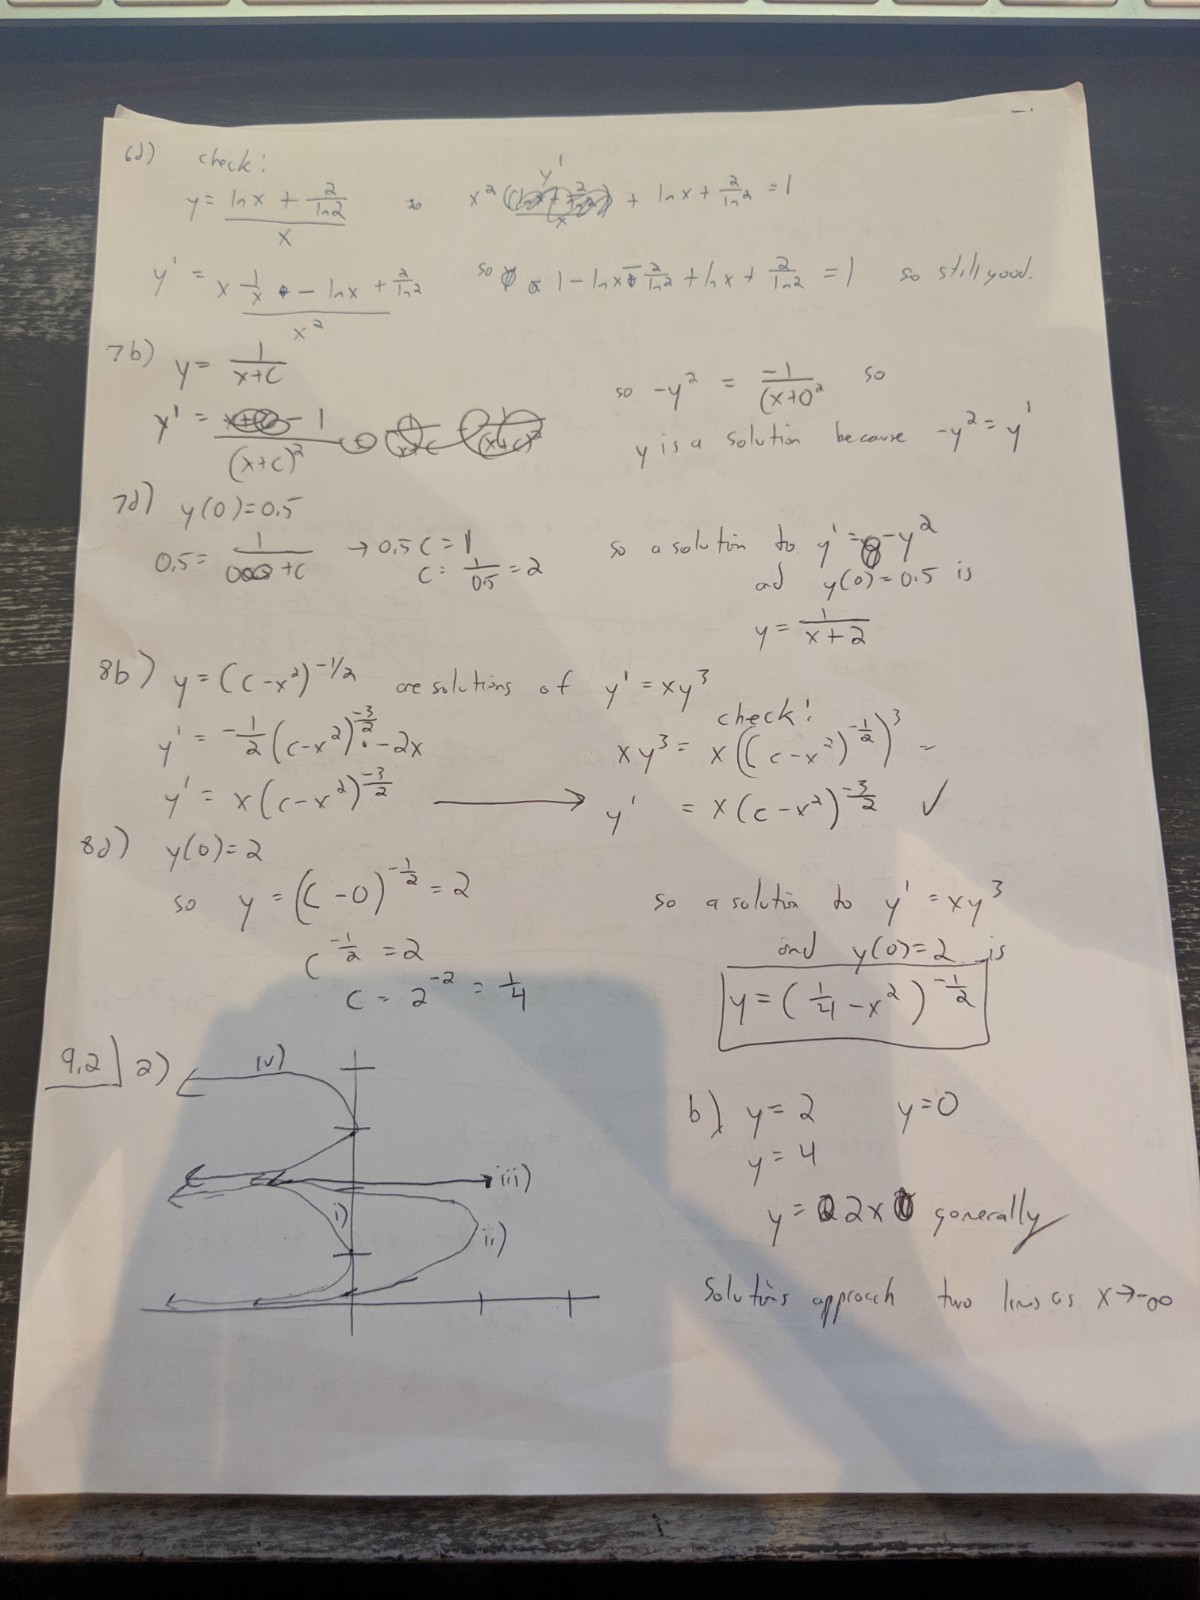 6d) check:
y = (ln x + 2/ln2)/x so x² (y') + ln x + 2/ln2 = 1
y' = (x 1/x - ln x + 2/ln2)/x² so 1 - ln x - 2/ln2 + ln x + 2/ln2 = 1 so still good.
7b) y = 1/(x+C)
y' = -1/(x+c)²
so -y² = -1/(x+C)² so
y is a solution because -y² = y'
7d) y(0) = 0.5
0.5 = 1/(0+C) → 0.5C = 1
C = 1/0.5 = 2
so a solution to y' = -y²
and y(0) = 0.5 is
y = 1/(x+2)
8b) y = (c-x²)^(-1/2) are solutions of y' = xy³
y' = -1/2 (c-x²)^(-3/2) · -2x
y' = x(c-x²)^(-3/2) →
check!
xy³ = x((c-x²)^(-1/2))³ =
y' = x(c-x²)^(-3/2) ✓
8d) y(0) = 2
so y = (C-0)^(-1/2) = 2
C^(-1/2) = 2
C = 2^(-2) = 1/4
so a solution to y' = xy³
and y(0) = 2 is
y = (1/4 - x²)^(-1/2)
9.2) 2)
iv)
iii)
i)
ii)
b) y = 2 y = 0
y = 4
y = 2x generally
Solutions approach two lines as x→-∞